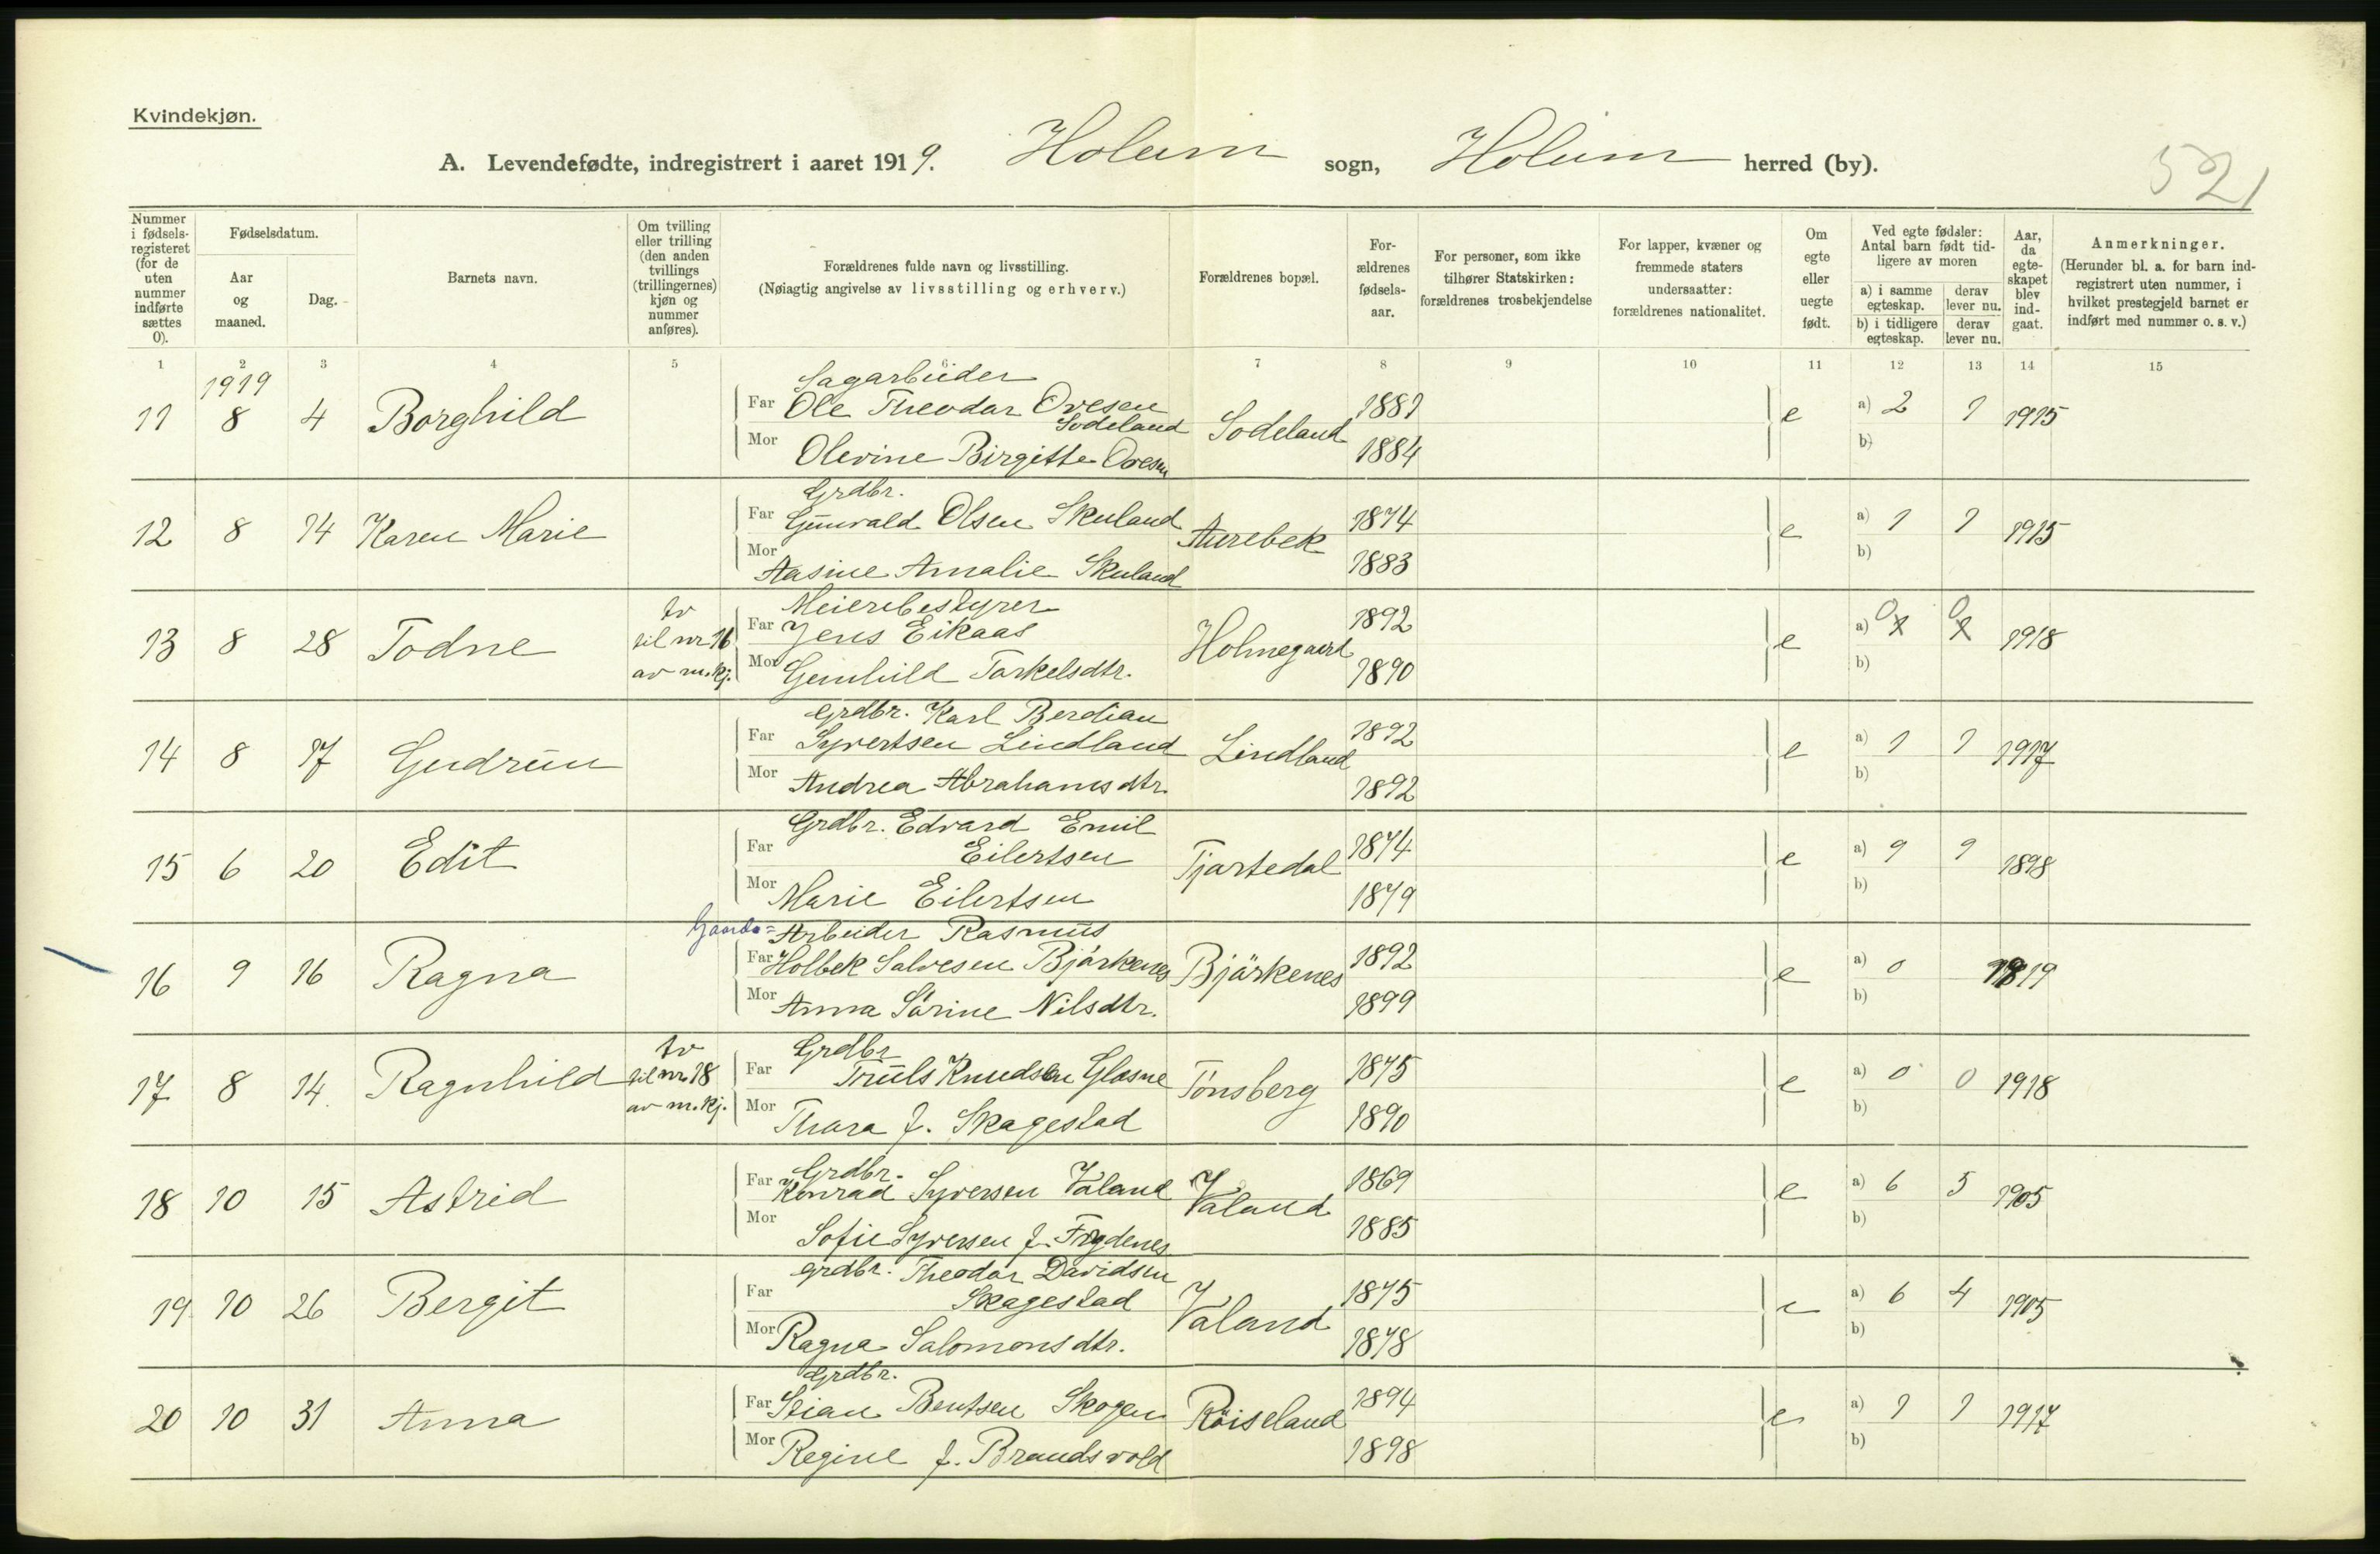 Kvindekjøn.
A. Levendefødte, indregistrert i aaret 1919. Holum sogn, Holum herred (by).
521
Nummer i fødsels-registeret (for de uten nummer indførte sættes 0).
Fødselsdatum.
Aar og maaned.
Dag.
Barnets navn.
Om tvilling eller trilling (den anden tvillings (trillingernes) kjøn og nummer anføres).
Forældrenes fulde navn og livsstilling.
(Nøiagtig angivelse av livsstilling og erhverv.)
Forældrenes bopæl.
For-ældrenes fødsels-aar.
For personer, som ikke tilhører Statskirken: forældrenes trosbekjendelse
For lapper, kvæner og fremmede staters undersaatter: forældrenes nationalitet.
Om egte eller uegte født.
Ved egte fødsler: Antal barn født tid-ligere av moren
a) i samme egteskap.
derav lever nu.
b) i tidligere egteskap.
derav lever nu.
Aar, da egte-skapet blev ind-gaat.
Anmerkninger.
(Herunder bl. a. for barn ind-registrert uten nummer, i hvilket prestegjeld barnet er indført med nummer o. s. v.)
1 2 3 4 5 6 7 8 9 10 11 12 13 14 15
1919 Sagarbeider
11 8 4 Borghild Far Ole Theodor Ovesen Sodeland Sodeland 1881 e a) 2 1 1915
Mor Olevine Birgitte Ovesen 1884 b)
Grdbr.
12 8 14 Karen Marie Far Gunvald Olsen Skuland Aurebek 1874 e a) 1 1 1915
Mor Aasine Amalie Skuland 1883 b)
tv Meieribestyrer
13 8 28 Todne til nr 16 Far Jens Eikaas Holmegaard 1892 e a) 0 0 1918
av m.kj. Mor Gunhild Torkelsdtr. 1890 b)
Grdbr. Karl Berdian
14 8 17 Gudrun Far Syvertsen Lindland Lindland 1892 e a) 1 1 1917
Mor Andrea Abrahamsdtr. 1892 b)
Grdbr. Edvard Emil
15 6 20 Edit Far Eilertsen Tjartedal 1874 e a) 9 9 1898
Mor Marie Eilertsen 1879 b)
Gaards= Arbeider Rasmus
16 9 16 Ragna Far Holbek Salvesen Bjørkenes Bjørkenes 1892 e a) 0 1919
Mor Anna Sørine Nilsdtr. 1899 b)
tv Grdbr
17 8 14 Ragnhild til nr 18 Far Truls Knudsen Glosne Tønsberg 1875 e a) 0 0 1918
av m.kj. Mor Thora f. Skagestad 1890 b)
Grdbr.
18 10 15 Astrid Far Konrad Syversen Valand Valand 1869 e a) 6 5 1905
Mor Sofie Syversen f. Frydenes 1885 b)
Grdbr. Theodor Davidsen
19 10 26 Bergit Far Skagestad Valand 1875 e a) 6 4 1905
Mor Ragna Salomonsdtr. 1878 b)
Grdbr.
20 10 31 Anna Far Stian Bentsen Skogen Røiseland 1894 e a) 1 1 1917
Mor Regine f. Brandsvold 1898 b)